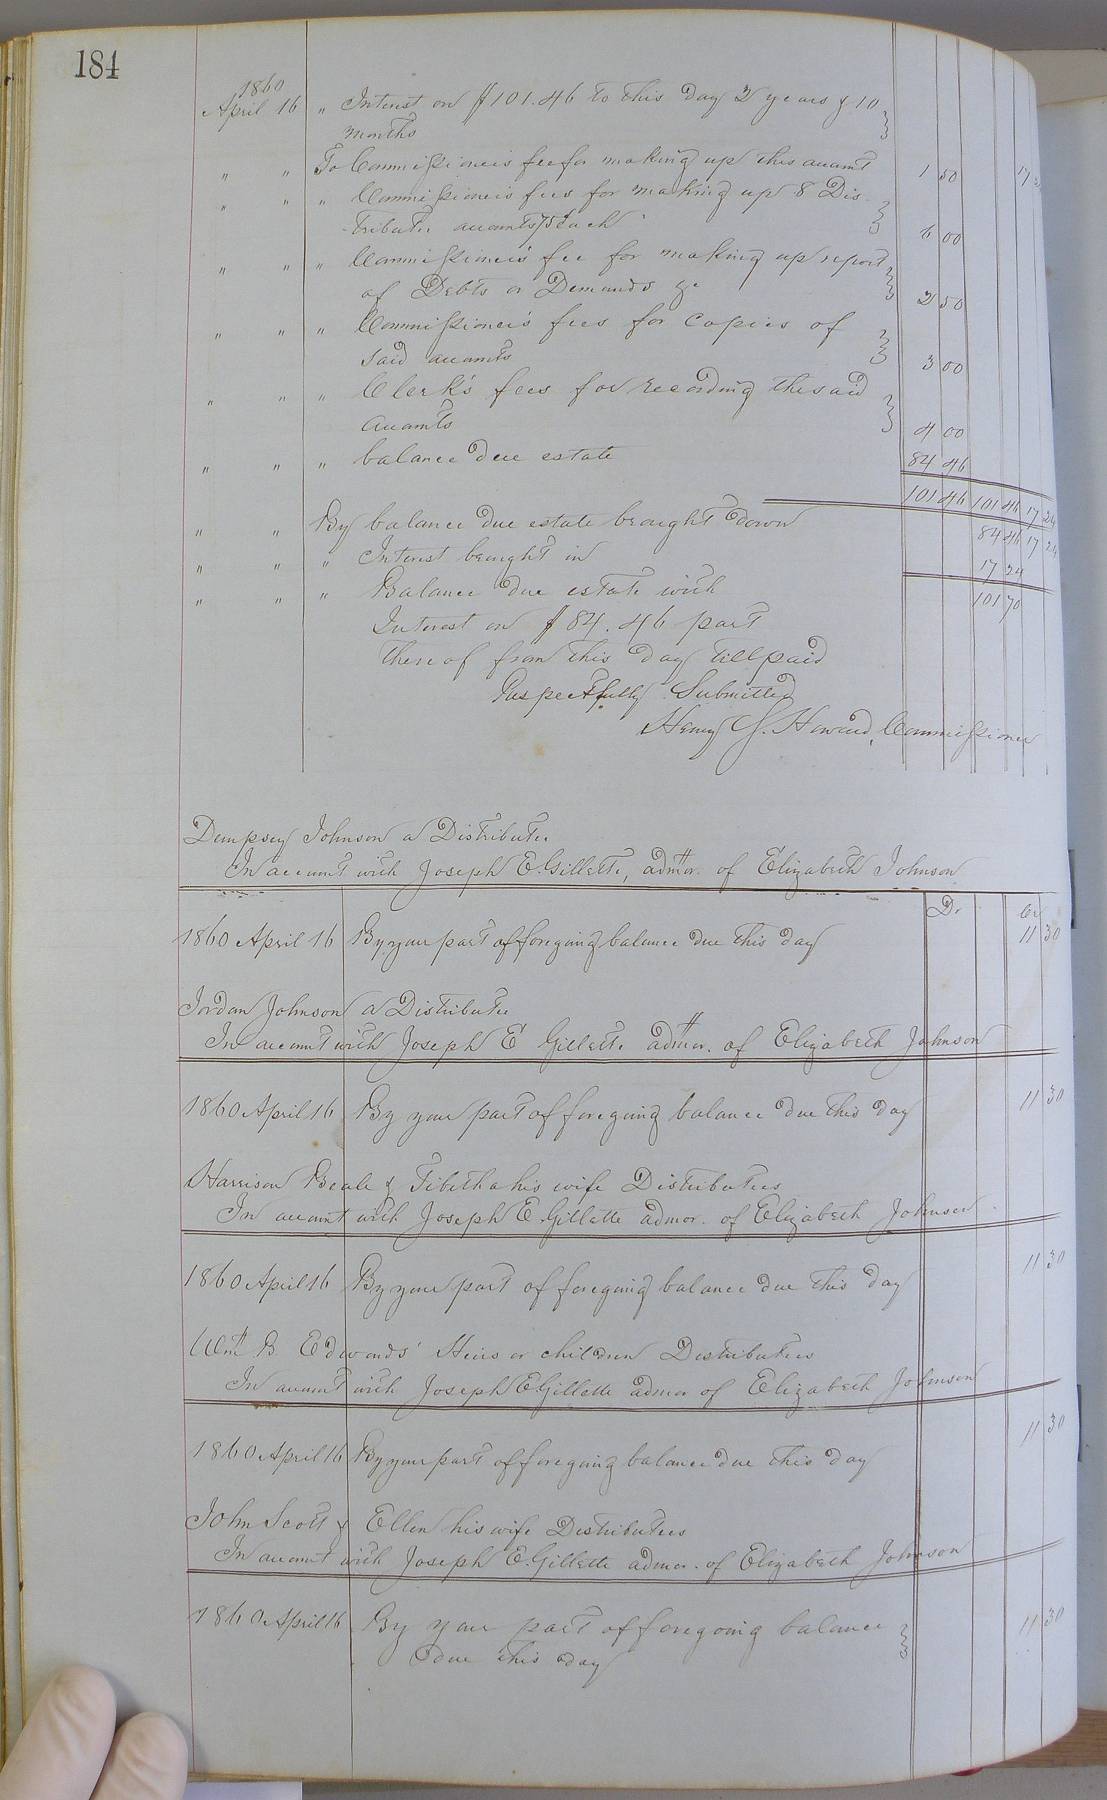 184
1860
April 16 " Interest on $101.46 to this day 2 years & 10
months
" " To Commissioner's fee for making up this account 1 50 17
" " " Commissioner's fees for making up 8 Dis
tributee accounts 75¢ each 6 00
" " " Commissioner's fee for making up report
of Debts or Demands &c 2 50
" " " Commissioner's fees for Copies of
said accounts 3 00
" " " Clerk's fees for recording the said
accounts 4 00
" " " balance due estate 84 46
101 46 101 46 17 24
" " By balance due estate brought down 84 46 17 24
" " " Interest brought in 17 24
" " " Balance due estate with 101 70
Interest on $84.46 part
thereof from this day till paid
Respectfully Submitted
Henry Howard, Commissioner
Dempsey Johnson a Distributee
In account with Joseph E. Gillette, admor. of Elizabeth Johnson
Dr Cr
1860 April 16 By your part of foregoing balance due this day 11 30
Jordan Johnson a Distributee
In account with Joseph E Gillette admor. of Elizabeth Johnson
1860 April 16 By your part of foregoing balance due this day 11 30
Harrison Beale & Tibitha his wife Distributees
In account with Joseph E. Gillette admor. of Elizabeth Johnson
1860 April 16 By your part of foregoing balance due this day 11 30
Wm B. Edwards' Heirs or children Distributees
In account with Joseph E Gillette admor of Elizabeth Johnson
1860 April 16 By your part of foregoing balance due this day 11 30
John Scott & Ellen his wife Distributees
In account with Joseph E. Gillette admor. of Elizabeth Johnson
1860 April 16 By your part of foregoing balance 11 30
due this day